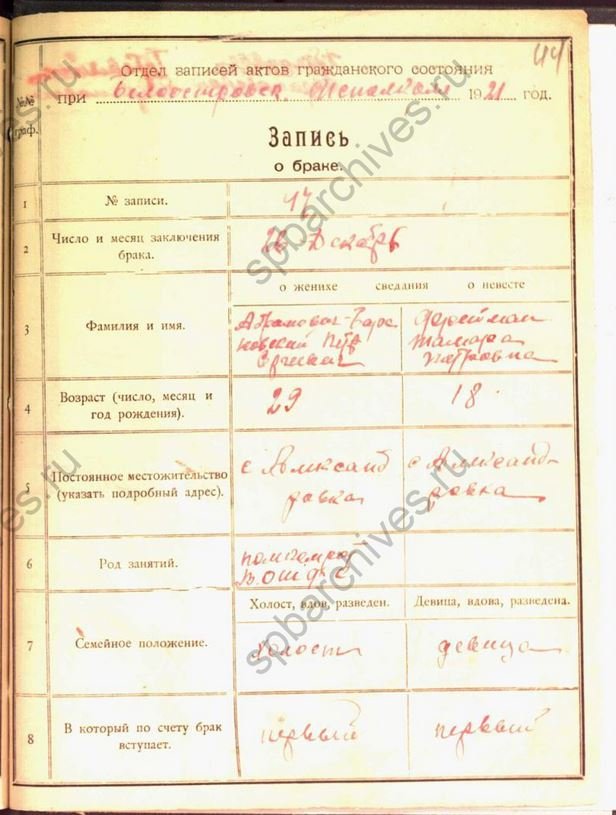 44
Отдел записей актов гражданского состояния
при Белоостровск. Исполком 1921 год.
№№ граф.
Запись
о браке.
1 № записи. 47
2 Число и месяц заключения брака. 26 Декабрь
о женихе сведания о невесте
3 Фамилия и имя.
Абрамович-Бара
новский Петр
Сергеевич
Тамара
Петровна
4 Возраст (число, месяц и год рождения). 29 18
5 Постоянное местожительство (указать подробный адрес).
с Александ
ровка
с Александ-
ровка
6 Род занятий.
7 Семейное положение.
Холост, вдов, разведен. Девица, вдова, разведена.
Холост девица
8 В который по счету брак вступает. первый первый
spbarchives.ru